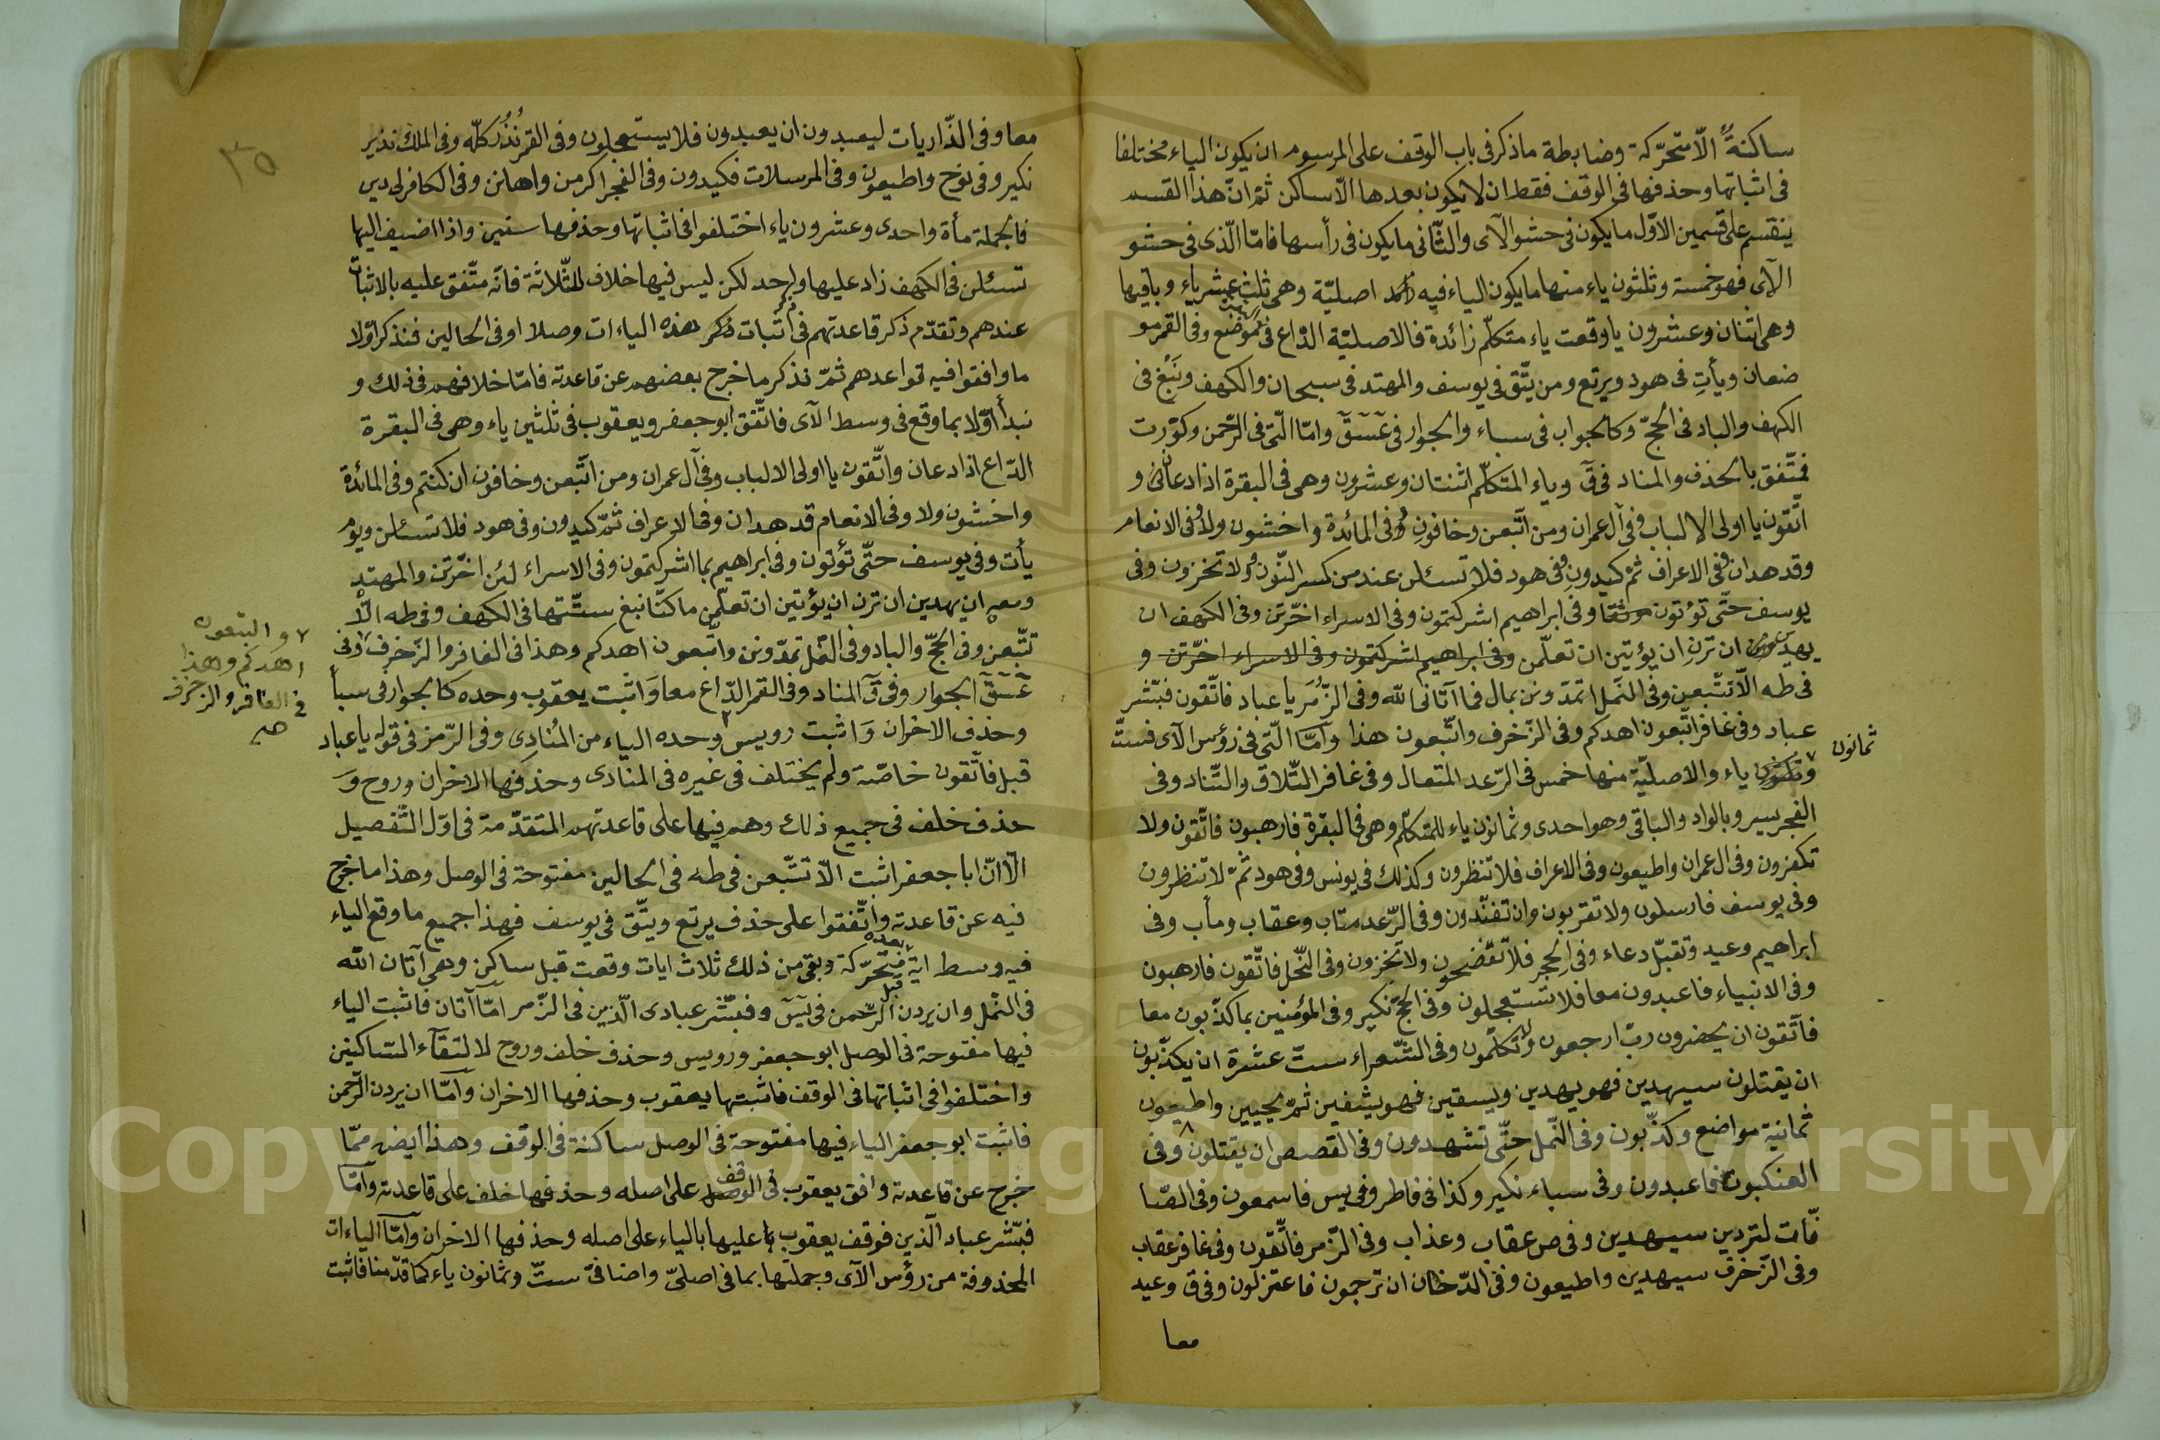 ساكنةً الّا متحرّكة وضابطة ماذكر فى باب الوقف على المرسوم ان يكون الياء مختلفا
فى اثباتها وحذفها فى الوقف فقط ان لا يكون بعدها الّا ساكن ثمّ انّ هذا القسم
ينقسم على قسمين الاوّل ما يكون فى حشو الآى والثّانى ما يكون فى رأسها فامّا الّذى فى حشو
الآى فهو خمسة وثلثون ياء منها ما يكون الياء فيه اصليّة وهى ثلث عشر ياء وباقيها
وهى اثنان وعشرون يا وقعت ياء متكلّم زائدة فالاصليّة الدّاع فى موضع وفى القمر مو
ضعان ويأتِ فى هود ويرتع ومن يتّق فى يوسف والمهتد فى سبحان والكهف ونَبْغِ فى
الكهف والباد فى الحجّ وكالجواب فى سباء والجوار فى عٓسٓقٓ وامّا الّتى فى الرّحمن وكوّرت
فمتّفق بالحذف والمناد فى قٓ وياء المتكلّم اثنتان وعشرون وهى فى البقرة اذا دعان و
اتّقون يا اولى الالباب وفى آل عمران ومن اتّبعن وخافون وفى المائدة واخشون ولا وفى الانعام
وقد هدان وفى الاعراف ثمّ كيدون وفى هود فلا تسئلن عند من كسر النّون ولا تخزون وفى
يوسف حتّى تؤتون وفى ابراهيم اشركتمون وفى الاسراء اخّرتن وفى الكهف ان
يهدين ان ترن ان يؤتين ان تعلّمن وفى ابراهيم اشركتمون وفى الاسراء اخّرتن و
فى طه الّا تتّبعن وفى النّمل اتمدّونن بمال فما آتانى الله وفى الزّمر يا عباد فاتّقون فبشّر
عباد وفى غافر اتّبعون اهدكم وفى الزّخرف واتّبعون هذا وامّا الّتى فى رؤس الآى فستّ
ثمانون
ياء والاصليّة منها خمس فى الرّعد المتعال وفى غافر التّلاق والتّناد وفى
الفجر يسر وبالواد والباقى وهو احدى وثمانون ياء للمتكلّم وهى فى البقرة فارهبون فاتّقون ولا
تكفرون وفى ال عمران واطيعون وفى الاعراف فلا تنظرون وكذلك فى يونس وفى هود ثمّ لا تنظرون
وفى يوسف فارسلون ولا تقربون وان تفنّدون وفى الرّعد متاب وعقاب ومأب وفى
ابراهيم وعيد وتقبّل دعاء وفى الحجر فلا تفضحون ولا تخزون وفى النّحل فاتّقون فارهبون
وفى الانبياء فاعبدون معا فلا تستعجلون وفى الحجّ نكير وفى المؤمنين بما كذّبون معا
فاتّقون ان يحضرون ربّ ارجعون ولا تكلّمون وفى الشّعراء ستّ عشرة ان يكذّبون
ان يقتلون سيهدين فهو يهدين ويسقين فهو يشفين ثمّ يحيين واطيعون
ثمانية مواضع وكذّبون وفى النّمل حتّى تشهدون وفى القصص ان يقتلون وفى
العنكبوت فاعبدون وفى سباء نكير وكذا فى فاطر وفى يس فاسمعون وفى الصّا
فّات لتردين سيهدين وفى ص عقاب وعذاب وفى الزّمر فاتّقون وفى غافر عقاب
وفى الزّخرف سيهدين واطيعون وفى الدّخان ان ترجمون فاعتزلون وفى ق وعيد
معا
٣٥
معا وفى الذّاريات ليعبدون ان يعبدون فلا يستعجلون وفى القمر نُذُر كلّه وفى الملك نذير
نكير وفى نوح واطيعون وفى المرسلات فكيدون وفى الفجر اكرمن واهانن وفى الكافر لى دين
فالجملة مأة واحدى وعشرون ياء اختلفوا فى اثباتها وحذفها ستين واذا اضيف اليها
تسئلن فى الكهف زاد عليها واحد لكن ليس فيها خلاف الثّلاثة فانّه متّفق عليه بالاثبات
عندهم وتقدّم ذكر قاعدتهم فى اثبات هذه الياءات وصلا او فى الحالين فنذكر اوّلا
ما وافقوا فيه قواعدهم ثمّ نذكر ما خرج بعضهم عن قاعدته فامّا خلافهم فى ذلك و
نبدأ اوّلا بما وقع فى وسط الآى فاتّفق ابو جعفر ويعقوب فى ثلثين ياء وهى فى البقرة
الدّاع اذا دعان واتّقون يا اولى الالباب وفى آل عمران ومن اتّبعن وخافون ان كنتم وفى المائدة
واخشون ولا وفى الانعام قد هدان وفى الاعراف ثمّ كيدون وفى هود فلا تسئلن ويوم
يأت وفى يوسف حتّى تؤتون وفى ابراهيم بما اشركتمون وفى الاسراء لئن اخّرتن والمهتد
ومعه ان يهدين ان ترن ان يؤتين ان تعلّمن ما كنّا نبغ ستّتها فى الكهف وفى طه الّا
تتّبعن وفى الحجّ والباد وفى النّمل تمدّونن واتّبعون اهدكم وهذا فى الغافر والزّخرف وفى
والتبعون
اهدكم وهذا
فى الغافر والزخرف
صح
عٓسٓقٓ الجوار وفى قٓ المناد وفى القمر الدّاع معا واثبت يعقوب وحده كالجوار فى سبأ
وحذف الاخران واثبت رويس وحده الياء من المُنادِى وفى الزّمر فى قوله يا عباد
قبل فاتّقون خاصّة ولم يختلف فى غيره فى المنادى وحذفها الاخران وروح وَ
حذف خلف فى جميع ذلك وهم فيها على قاعدتهم المتقدّمة فى اوّل التّفصيل
الّا انّ ابا جعفر اثبت الّا تتّبعن فى طه فى الحالين مفتوحة فى الوصل وهذا ما خرج
فيه عن قاعدته واتّفقوا على حذف يرتع ويتّق فى يوسف فهذا جميع ما وقع الياء
فيه وسط اية بعده متحرّكة وبقى من ذلك ثلاث ايات وقعت قبل ساكن وهى آتان الله
فى النّمل وان يردن الرّحمن فى يٓسٓ وفبشّر عبادى الّذين فى الزّمر امّا آتان فاثبت الياء
فيها مفتوحة فى الوصل ابو جعفر ورويس وحذف خلف وروح لالتقاء السّاكنين
واختلفوا فى اثباتها فى الوقف فاثبتها يعقوب وحذفها الاخران وامّا ان يردن الرّحمن
فاثبت ابو جعفر الياء فيها مفتوحة فى الوصل ساكنة فى الوقف وهذا ايض ممّا
خرج عن قاعدته وافق يعقوب فى الوقف على اصله وحذفها خلف على قاعدته وامّا
فبشّر عباد الّذين فوقف يعقوب عليها بالياء على اصله وحذفها الاخران وامّا الياءات
المحذوفة من رؤس الآى وجملتها بما فى اصلىّ واضافىّ ستّ وثمانون ياء كما قدّمنا فاثبت
Copyright © King Saud University